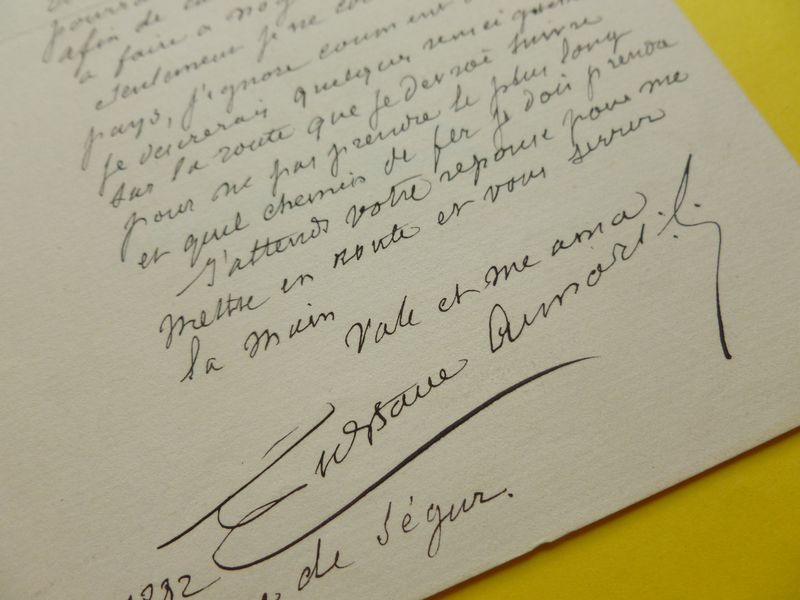 afin de
a faire a
Seulement je ne
pays, j'ignore comment
Je desirerais quelques renseignem
sur la route que je devrai suivre
pour ne pas prendre le plus long
et quel chemin de fer je dois prendre
J'attends votre reponse pour me
mettre en route et vous serrer
la main
Vale et me ama
Gustave
1882
de Ségur.